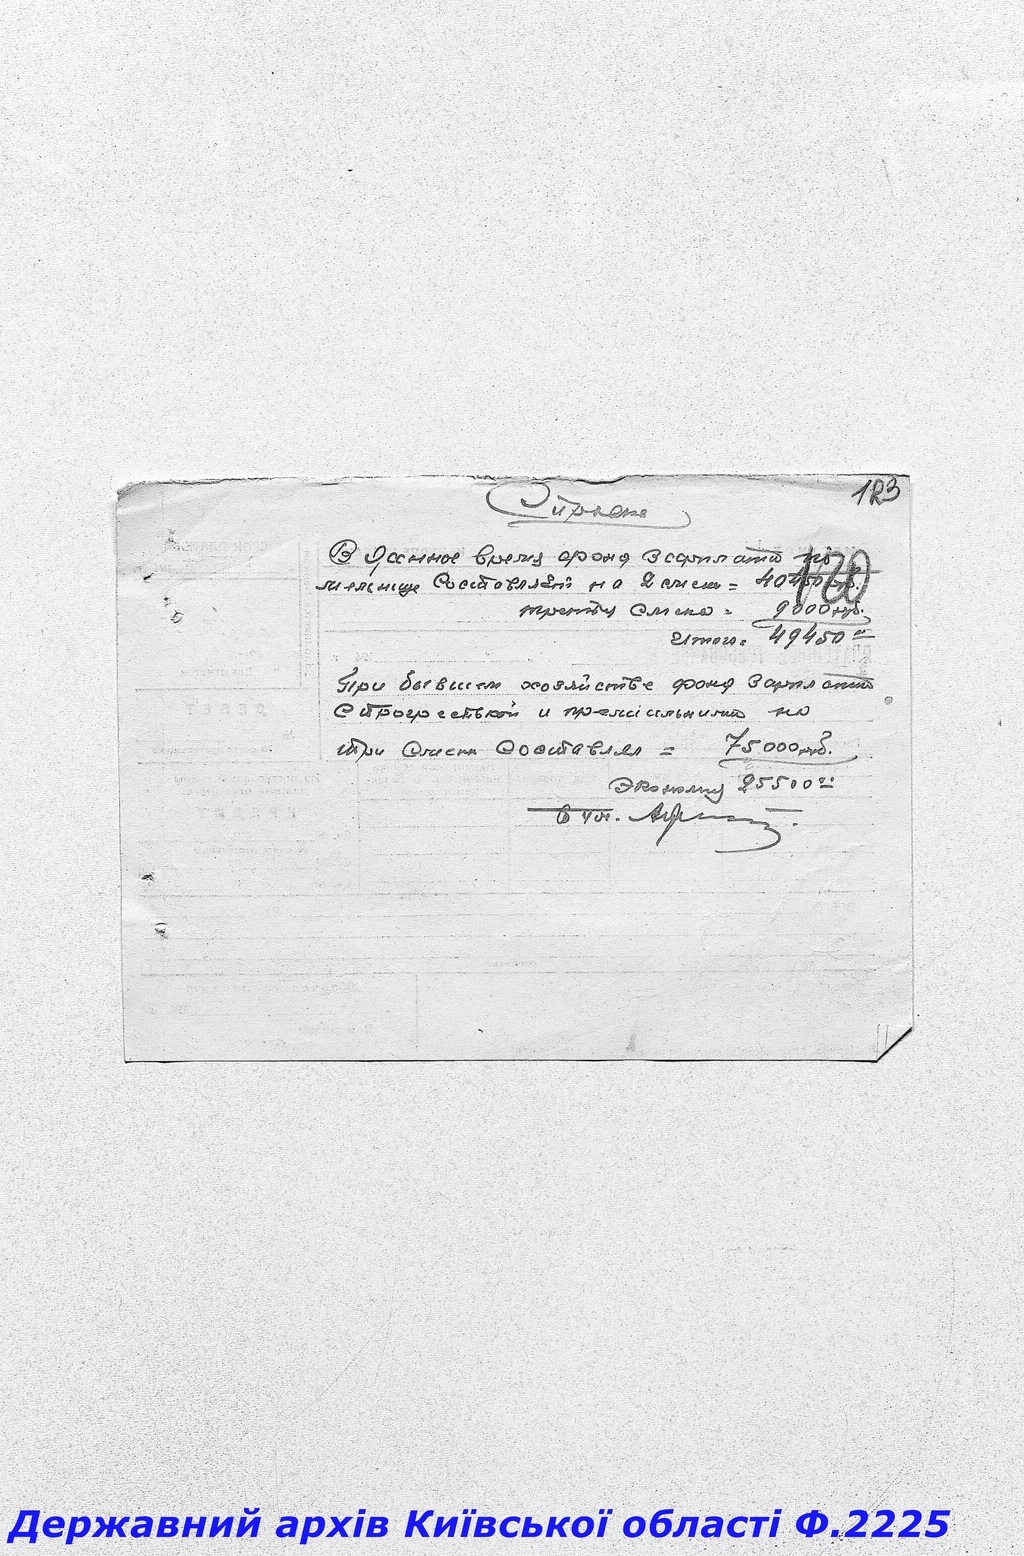 123
Справка
120
В данное время фонд зарплаты по
мельнице составляет на 2 смены = 40450 руб.
третью смена = 9000 руб.
Итого = 49450 =
При бывшем хозяйстве фонд зарплаты
с прогрессивкой и премиальными на
три смены составлял = 75000 руб.
Экономлю 25500 =
Державний архів Київської області Ф.2225